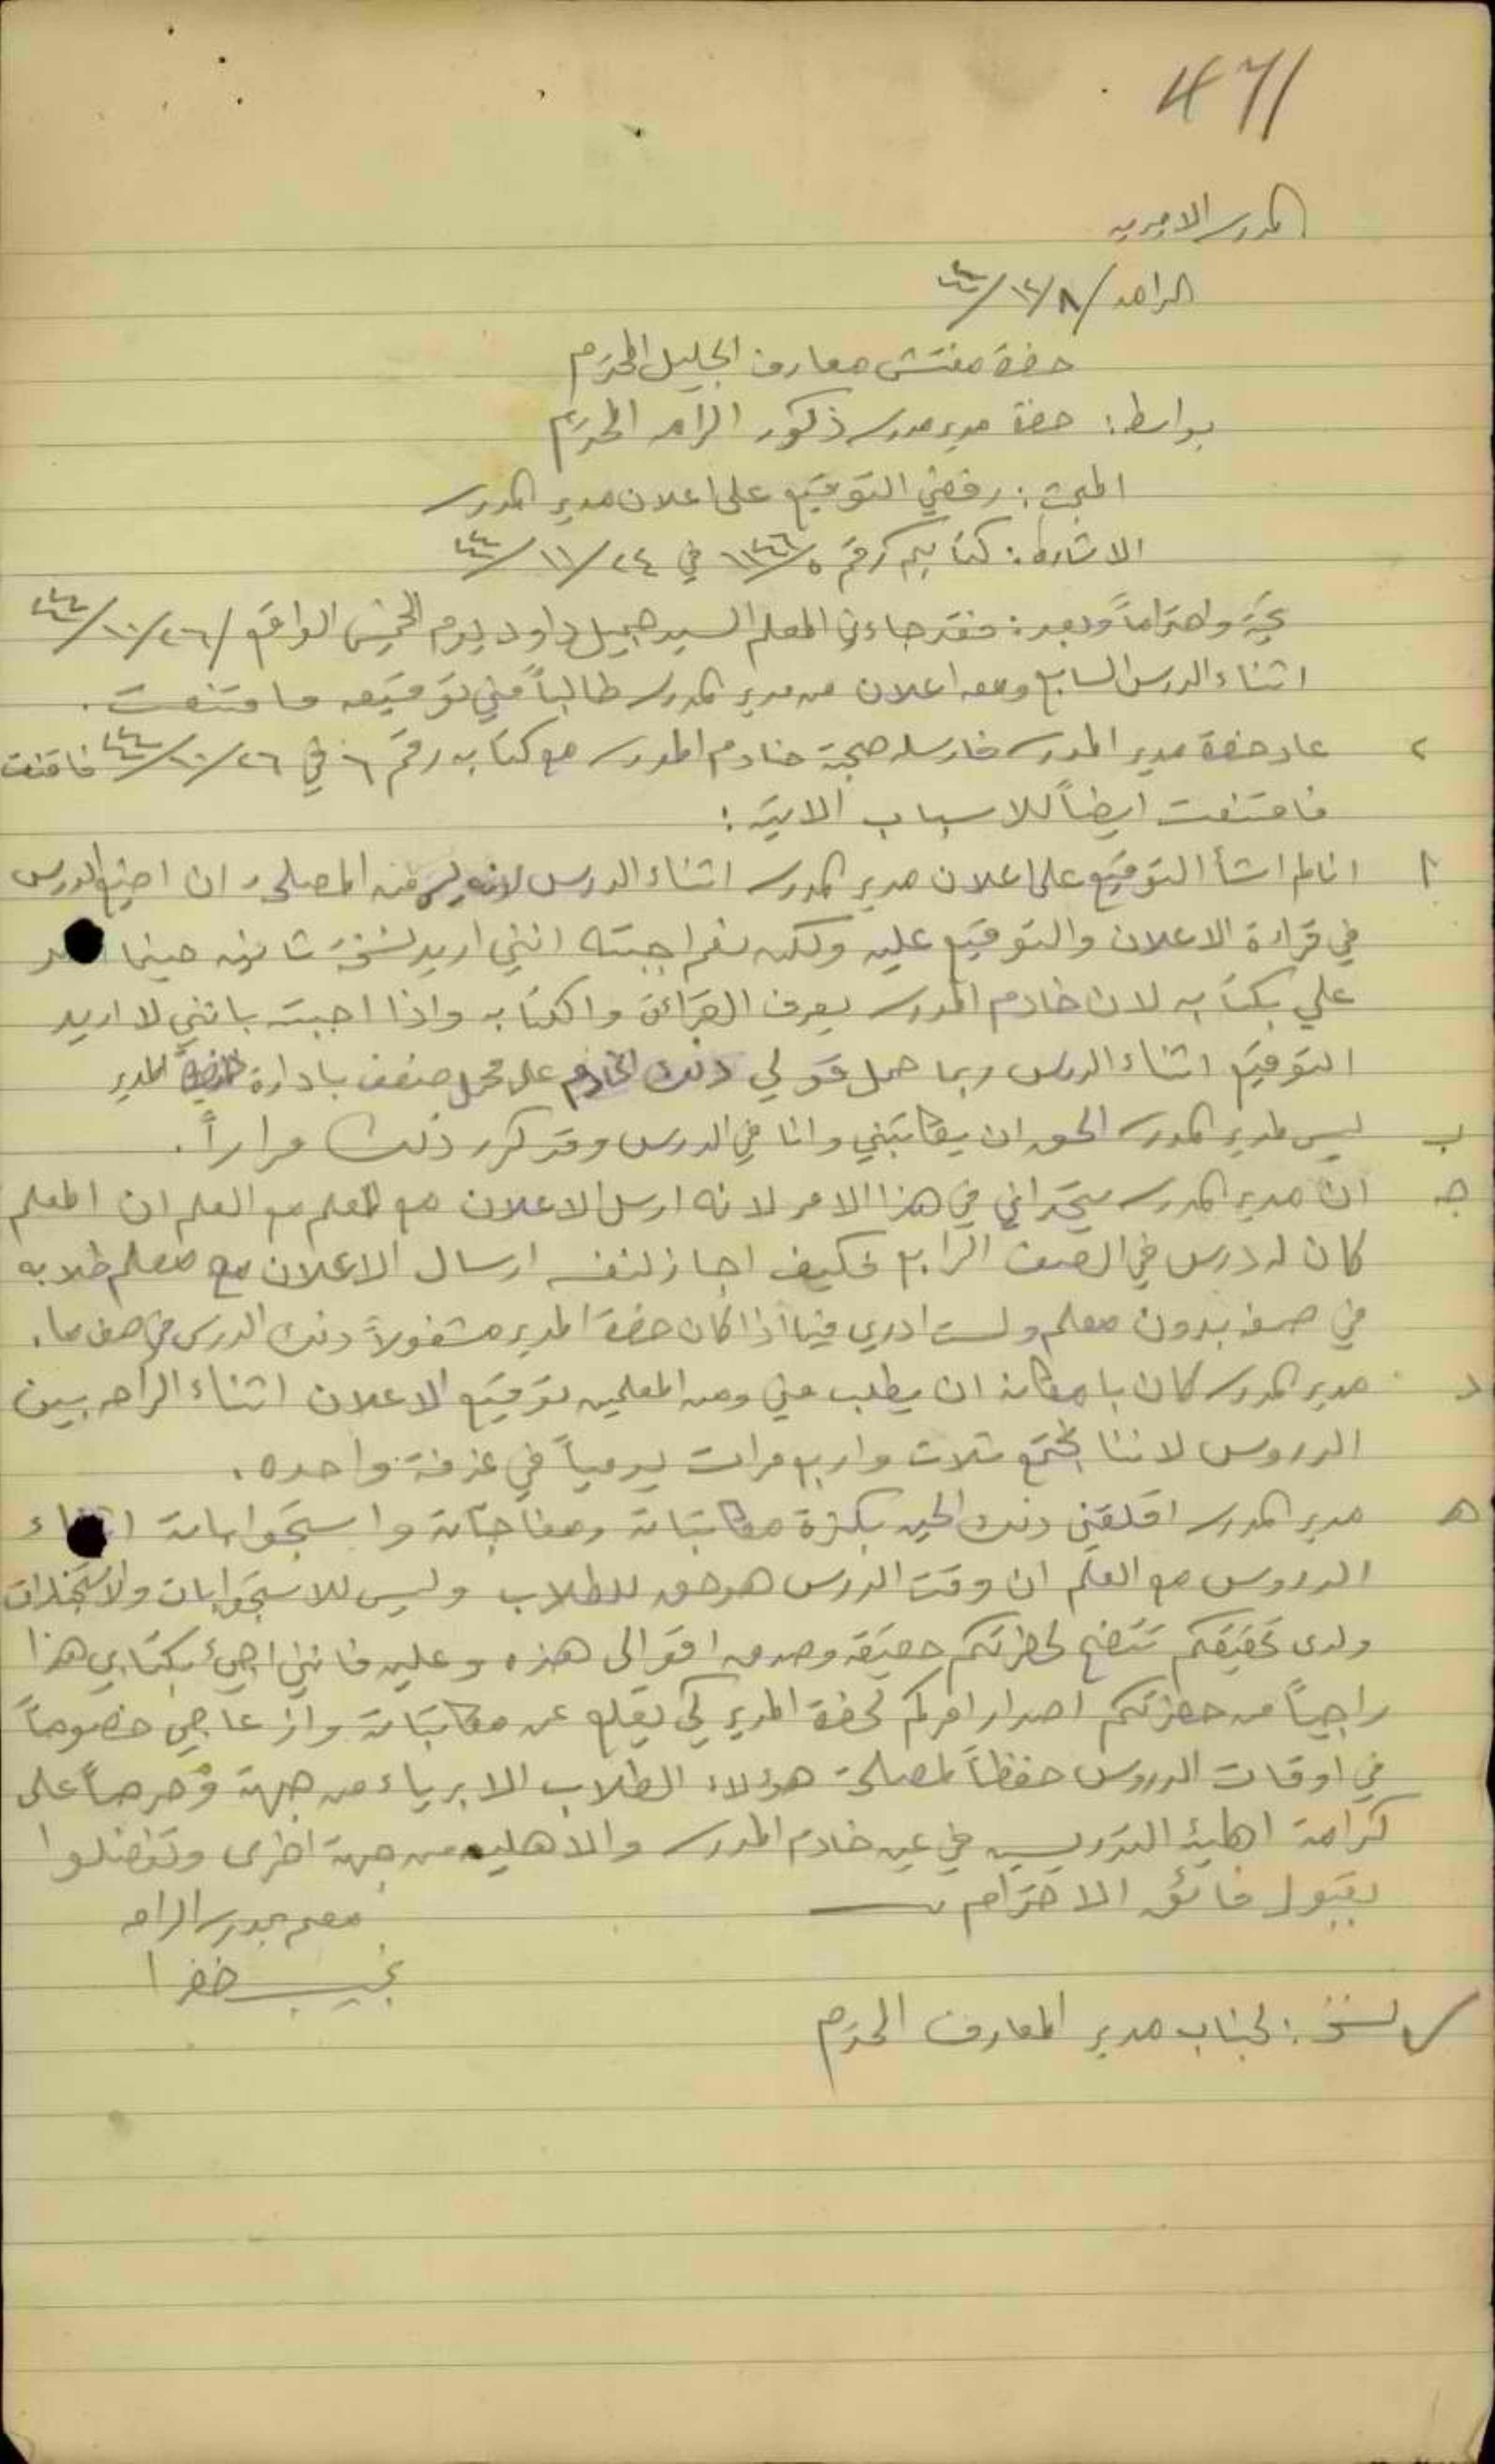 471
المدرسة الاميرية
الرامه / ٨/١٢/٤٤
حضرة مفتش معارف الجليل المحترم
بواسطة: حضرة مدير مدرسة ذكور الرامه المحترم
المبحث: رفضي التوقيع على اعلان مدير المدرسة
الاشارة: كتابكم رقم في ٢٤/١١/٤٤
تحية واحتراماً وبعد: فقد جاءني المعلم السيد جميل داود يوم الخميس الواقع / ٢٦/١٠/٤٤
اثناء الدرس السابع ومعه اعلان من مدير المدرسة طالباً مني توقيعه فامتنعت.
٢ عاد حضرة مدير المدرسة فارسله صحبة خادم المدرسة مع كتابه رقم ٦ في ٢٦/١٠/٤٤ فامتنعت
فامتنعت ايضاً للاسباب الاتية:
أ انا لم اشأ التوقيع على اعلان مدير المدرسة اثناء الدرس لانه ليس من المصلحة ان اضيع الدرس
في قراءة الاعلان والتوقيع عليه ولكن نعم اجبته انني اريد نسخة ثانية حينما
علي بكتابه لان خادم المدرسة يعرف القرائة والكتابه واذا اجبته بانني لا اريد
التوقيع اثناء الدرس ربما حمل قولي ذلك الخادم على محمل ضعف بادارة حضرة المدير
ب ليس لمدير المدرسة الحق ان يكاتبني وانا في الدرس وقد كرر ذلك مراراً.
جـ ان مدير المدرسة يتحداني في هذا الامر لانه ارسل الاعلان مع المعلم مع العلم ان المعلم
كان له درس في الصف الرابع فكيف اجاز لنفسه ارسال الاعلان مع معلم طلابه
في صفه بدون معلم ولست ادري فيما اذا كان حضرة المدير مشغولاً ذلك الدرس في صف ما.
د مدير المدرسة كان بامكانه ان يطلب مني ومن المعلمين توقيع الاعلان اثناء الراحه بين
الدروس لاننا نجتمع ثلاث واربع مرات يومياً في غرفة واحده.
هـ مدير المدرسة اقلقني ذلك الحين بكثرة مكاتباته ومفاجآته واستجواباته اثناء
الدروس مع العلم ان وقت الدرس هو حق للطلاب وليس للاستجوابات
ولدى تحقيقكم تتضح لحضرتكم حقيقة وصدق اقوالي هذه وعليه فانني اجيء بكتابي هذا
راجياً من حضرتكم اصدار امركم لحضرة المدير كي يقلع عن مكاتباته وازعاجي خصوصاً
في اوقات الدروس حفظاً لمصلحة هؤلاء الطلاب الابرياء من جهة وحرصاً على
كرامة اهلية التدريس في عين خادم المدرسة والاهلين من جهة اخرى وتفضلوا
بقبول فائق الاحترام
معلم بمدرسة الرامه
نجيب خفرا
نسخة: لجناب مدير المعارف المحترم